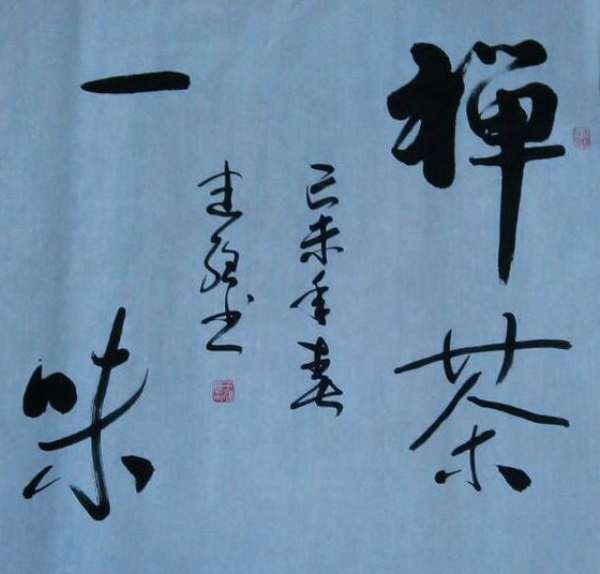 禅茶
己未年春
建强书
一味